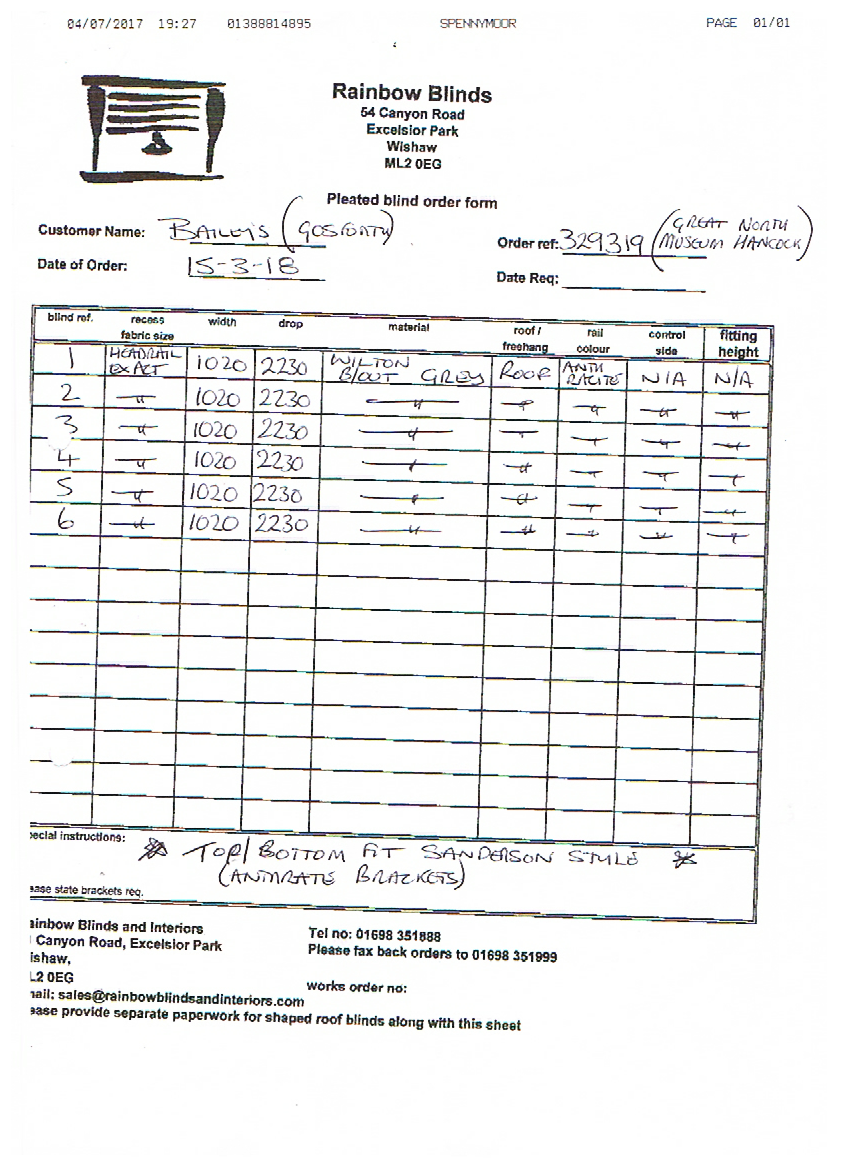 04/07/2017 19:27 01388814895 SPENNYMOOR PAGE 01/01
Rainbow Blinds
54 Canyon Road
Excelsior Park
Wishaw
ML2 0EG
Pleated blind order form
Customer Name: BAILEY'S (GOSFORTH)
Order ref: 329319 (GREAT NORTH MUSEUM HANCOCK)
Date of Order: 15-3-18
Date Req:
blind ref. recess fabric size width drop material roof / freehang rail colour control side fitting height
1 HEADRAIL EXACT 1020 2230 WILTON B/OUT GREY ROOF ANTHRACITE N/A N/A
2 -"- 1020 2230 -"- -"- -"- -"- -"-
3 -"- 1020 2230 -"- -"- -"- -"- -"-
4 -"- 1020 2230 -"- -"- -"- -"- -"-
5 -"- 1020 2230 -"- -"- -"- -"- -"-
6 -"- 1020 2230 -"- -"- -"- -"- -"-
pecial instructions:
* TOP/BOTTOM FIT SANDERSON STYLE *
(ANTHRATE BRACKETS)
ease state brackets req.
ainbow Blinds and Interiors
Canyon Road, Excelsior Park
ishaw,
L2 0EG
nail: sales@rainbowblindsandinteriors.com
Tel no: 01698 351888
Please fax back orders to 01698 351999
works order no:
ease provide separate paperwork for shaped roof blinds along with this sheet